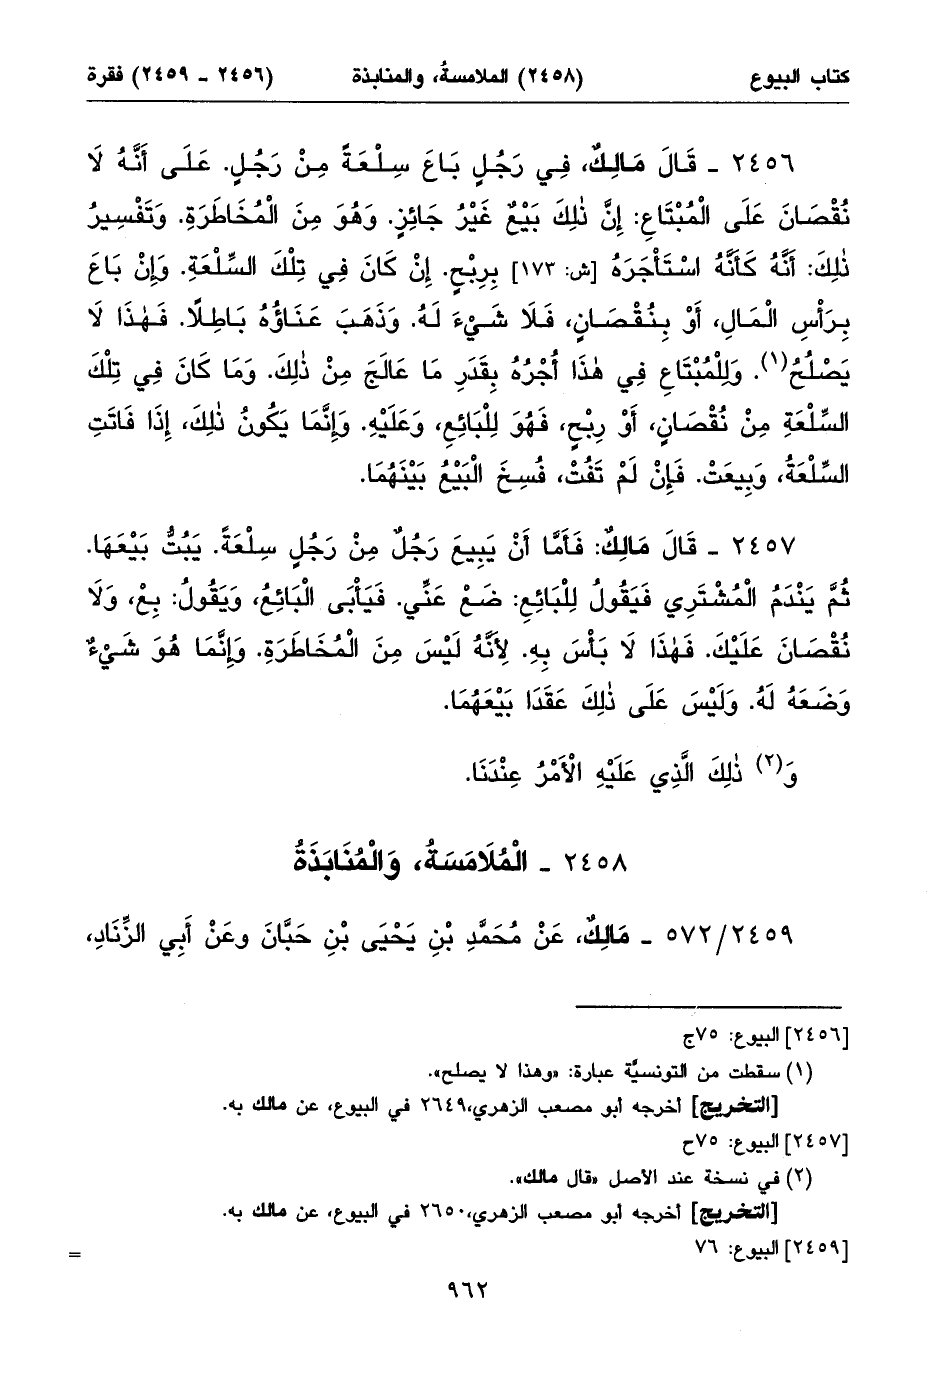 كتاب البيوع (٢٤٥٨) الملامسةُ، والمنابذة (٢٤٥٦ - ٢٤٥٩) فقرة
٢٤٥٦ - قَالَ مَالِكٌ، فِي رَجُلٍ بَاعَ سِلْعَةً مِنْ رَجُلٍ. عَلَى أَنَّهُ لَا
نُقْصَانَ عَلَى الْمُبْتَاعِ: إِنَّ ذٰلِكَ بَيْعٌ غَيْرُ جَائِزٍ. وَهُوَ مِنَ الْمُخَاطَرَةِ. وَتَفْسِيرُ
ذٰلِكَ: أَنَّهُ كَأَنَّهُ اسْتَأْجَرَهُ [ش: ١٧٣] بِرِبْحٍ. إِنْ كَانَ فِي تِلْكَ السِّلْعَةِ. وَإِنْ بَاعَ
بِرَأْسِ الْمَالِ، أَوْ بِنُقْصَانٍ، فَلَا شَيْءَ لَهُ. وَذَهَبَ عَنَاؤُهُ بَاطِلًا. فَهٰذَا لَا
يَصْلُحُ(١). وَلِلْمُبْتَاعِ فِي هٰذَا أُجْرُهُ بِقَدَرِ مَا عَالَجَ مِنْ ذٰلِكَ. وَمَا كَانَ فِي تِلْكَ
السِّلْعَةِ مِنْ نُقْصَانٍ، أَوْ رِبْحٍ، فَهُوَ لِلْبَائِعِ، وَعَلَيْهِ. وَإِنَّمَا يَكُونُ ذٰلِكَ، إِذَا فَاتَتِ
السِّلْعَةُ، وَبِيعَتْ. فَإِنْ لَمْ تَفُتْ، فُسِخَ الْبَيْعُ بَيْنَهُمَا.
٢٤٥٧ - قَالَ مَالِكٌ: فَأَمَّا أَنْ يَبِيعَ رَجُلٌ مِنْ رَجُلٍ سِلْعَةً. يَبُتُّ بَيْعَهَا.
ثُمَّ يَنْدَمُ الْمُشْتَرِي فَيَقُولُ لِلْبَائِعِ: ضَعْ عَنِّي. فَيَأْبَى الْبَائِعُ، وَيَقُولُ: بِعْ، وَلَا
نُقْصَانَ عَلَيْكَ. فَهٰذَا لَا بَأْسَ بِهِ. لِأَنَّهُ لَيْسَ مِنَ الْمُخَاطَرَةِ. وَإِنَّمَا هُوَ شَيْءٌ
وَضَعَهُ لَهُ. وَلَيْسَ عَلَى ذٰلِكَ عَقَدَا بَيْعَهُمَا.
وَ(٢) ذٰلِكَ الَّذِي عَلَيْهِ الْأَمْرُ عِنْدَنَا.
٢٤٥٨ - الْمُلَامَسَةُ، وَالْمُنَابَذَةُ
٥٧٢/٢٤٥٩ - مَالِكٌ، عَنْ مُحَمَّدِ بْنِ يَحْيَى بْنِ حَبَّانَ وعَنْ أَبِي الزِّنَادِ،
[٢٤٥٦] البيوع: ٧٥ج
(١) سقطت من التونسيَّة عبارة: «وهذا لا يصلح».
[التخريج] أخرجه أبو مصعب الزهري،٢٦٤٩ في البيوع، عن مالك به.
[٢٤٥٧] البيوع: ٧٥ح
(٢) في نسخة عند الأصل «قال مالك».
[التخريج] أخرجه أبو مصعب الزهري،٢٦٥٠ في البيوع، عن مالك به.
[٢٤٥٩] البيوع: ٧٦ =
٩٦٢